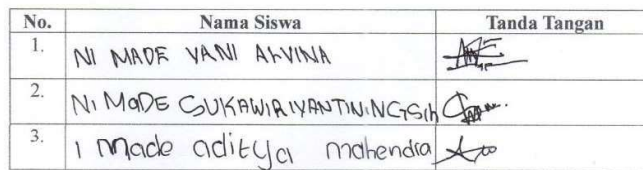 No. Nama Siswa Tanda Tangan
1. NI MADE YANI ALVINA
2. NI MADE SUKAWIRIYANTININGSih
3. I made aditya mahendra